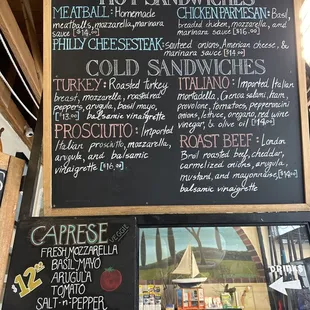 HOT SANDWICHES
MEATBALL: Homemade
meatballs, mozzarella, marinara
sauce $14.00
CHICKEN PARMESAN: Basil,
breaded chicken, mozzarella, and
marinara sauce $16.00
PHILLY CHEESESTEAK: sauteed onions, American cheese, &
marinara sauce
COLD SANDWICHES
TURKEY: Roasted turkey
breast, mozzarella, roasted
peppers, arugula, basil mayo,
$13.00 balsamic vinaigrette
PROSCIUTTO: Imported
Italian prosciutto, mozzarella,
arugula, and balsamic
vinaigrette $16.00
ITALIANO: Imported Italian
mortadella, Genoa salami, ham,
provolone, tomatoes, pepperoncini
onions, lettuce, oregano, red wine
vinegar, & olive oil $14.00
ROAST BEEF: London
Broil roasted beef, cheddar,
carmelized onions, arugula,
mustard, and mayonnaise, $14.00
balsamic vinaigrette
CAPRESE VEGGIE
$12.00
FRESH MOZZARELLA
BASIL MAYO
ARUGULA
TOMATO
SALT -n- PEPPER
DRINKS